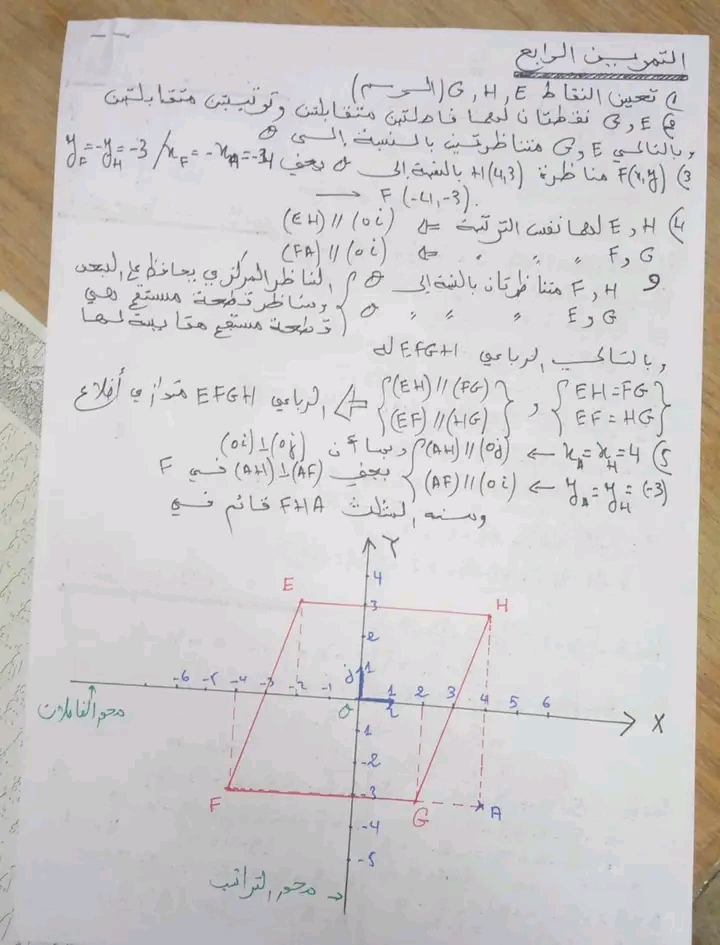 التمرين الرابع
1) تعيين النقاط G, H, E (الرسم)
2) G و E نقطتان لهما فاصلتين متقابلتين وترتيبتين متقابلتين
وبالتالي E و G متناظرتين بالنسبة إلى O
3) F(x,y) مناظرة H(4,3) بالنسبة إلى O يعني y_F = -y_H = -3 / x_F = -x_A = -34
→ F(-4,-3).
4) H و E لهما نفس الترتيبة ⇐ (EH) // (Oi)
G و F " " " ⇐ (FA) // (Oi)
و H و F متناظرتان بالنسبة إلى O } التناظر المركزي يحافظ على البعد
G و E " " " O } ومناظر قطعة مستقيم هي
قطعة مستقيم مقايسة لها
وبالتالي الرباعي EFGH له
{ EH = FG و { (EH) // (FG) } ⇐ الرباعي EFGH متوازي أضلاع
{ EF = HG { (EF) // (HG) }
5) x_A = x_H = 4 ← (AH) // (Oj) وبما أن (Oi) ⊥ (Oj)
y_A = y_H = (-3) ← (AF) // (Oi) يعني (AH) ⊥ (AF) في F
ومنه المثلث FHA قائم في
Y
4
E
3
H
2
1
j
-6 -5 -4 -3 -2 -1 O i 1 2 3 4 5 6
X
محور الفاصلات
-1
-2
F
-3
G
A
-4
-5
محور التراتيب